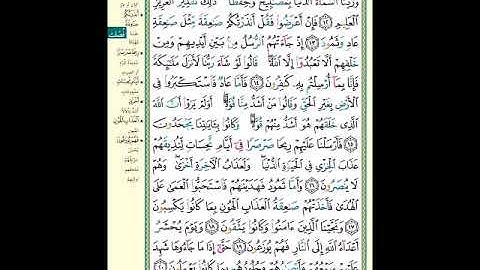 وَزَيَّنَّا ٱلسَّمَآءَ ٱلدُّنْيَا بِمَصَٰبِيحَ وَحِفْظًا ۚ ذَٰلِكَ تَقْدِيرُ ٱلْعَزِيزِ
ٱلْعَلِيمِ ١٢ فَإِنْ أَعْرَضُوا۟ فَقُلْ أَنذَرْتُكُمْ صَٰعِقَةً مِّثْلَ صَٰعِقَةِ
عَادٍ وَثَمُودَ ١٣ إِذْ جَآءَتْهُمُ ٱلرُّسُلُ مِنۢ بَيْنِ أَيْدِيهِمْ وَمِنْ
خَلْفِهِمْ أَلَّا تَعْبُدُوٓا۟ إِلَّا ٱللَّهَ ۖ قَالُوا۟ لَوْ شَآءَ رَبُّنَا لَأَنزَلَ مَلَٰٓئِكَةً
فَإِنَّا بِمَآ أُرْسِلْتُم بِهِۦ كَٰفِرُونَ ١٤ فَأَمَّا عَادٌ فَٱسْتَكْبَرُوا۟ فِى
ٱلْأَرْضِ بِغَيْرِ ٱلْحَقِّ وَقَالُوا۟ مَنْ أَشَدُّ مِنَّا قُوَّةً ۖ أَوَلَمْ يَرَوْا۟ أَنَّ ٱللَّهَ
ٱلَّذِى خَلَقَهُمْ هُوَ أَشَدُّ مِنْهُمْ قُوَّةً ۖ وَكَانُوا۟ بِـَٔايَٰتِنَا يَجْحَدُونَ
١٥ فَأَرْسَلْنَا عَلَيْهِمْ رِيحًا صَرْصَرًا فِىٓ أَيَّامٍ نَّحِسَاتٍ لِّنُذِيقَهُمْ
عَذَابَ ٱلْخِزْىِ فِى ٱلْحَيَوٰةِ ٱلدُّنْيَا ۖ وَلَعَذَابُ ٱلْـَٔاخِرَةِ أَخْزَىٰ ۖ وَهُمْ
لَا يُنصَرُونَ ١٦ وَأَمَّا ثَمُودُ فَهَدَيْنَٰهُمْ فَٱسْتَحَبُّوا۟ ٱلْعَمَىٰ عَلَى
ٱلْهُدَىٰ فَأَخَذَتْهُمْ صَٰعِقَةُ ٱلْعَذَابِ ٱلْهُونِ بِمَا كَانُوا۟ يَكْسِبُونَ
١٧ وَنَجَّيْنَا ٱلَّذِينَ ءَامَنُوا۟ وَكَانُوا۟ يَتَّقُونَ ١٨ وَيَوْمَ يُحْشَرُ
أَعْدَآءُ ٱللَّهِ إِلَى ٱلنَّارِ فَهُمْ يُوزَعُونَ ١٩ حَتَّىٰٓ إِذَا مَا جَآءُوهَا شَهِدَ
عَلَيْهِمْ سَمْعُهُمْ وَأَبْصَٰرُهُمْ وَجُلُودُهُم بِمَا كَانُوا۟ يَعْمَلُونَ ٢٠